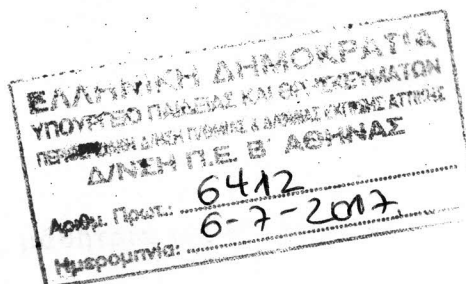 ΕΛΛΗΝΙΚΗ ΔΗΜΟΚΡΑΤΙΑ
ΥΠΟΥΡΓΕΙΟ ΠΑΙΔΕΙΑΣ ΚΑΙ ΘΡΗΣΚΕΥΜΑΤΩΝ
ΠΕΡΙΦΕΡΕΙΑΚΗ Δ/ΝΣΗ Π/ΘΜΙΑΣ & Δ/ΘΜΙΑΣ ΕΚΠ/ΣΗΣ ΑΤΤΙΚΗΣ
Δ/ΝΣΗ Π.Ε. Β΄ ΑΘΗΝΑΣ
Αριθμ. Πρωτ.: 6412
Ημερομηνία: 6-7-2017